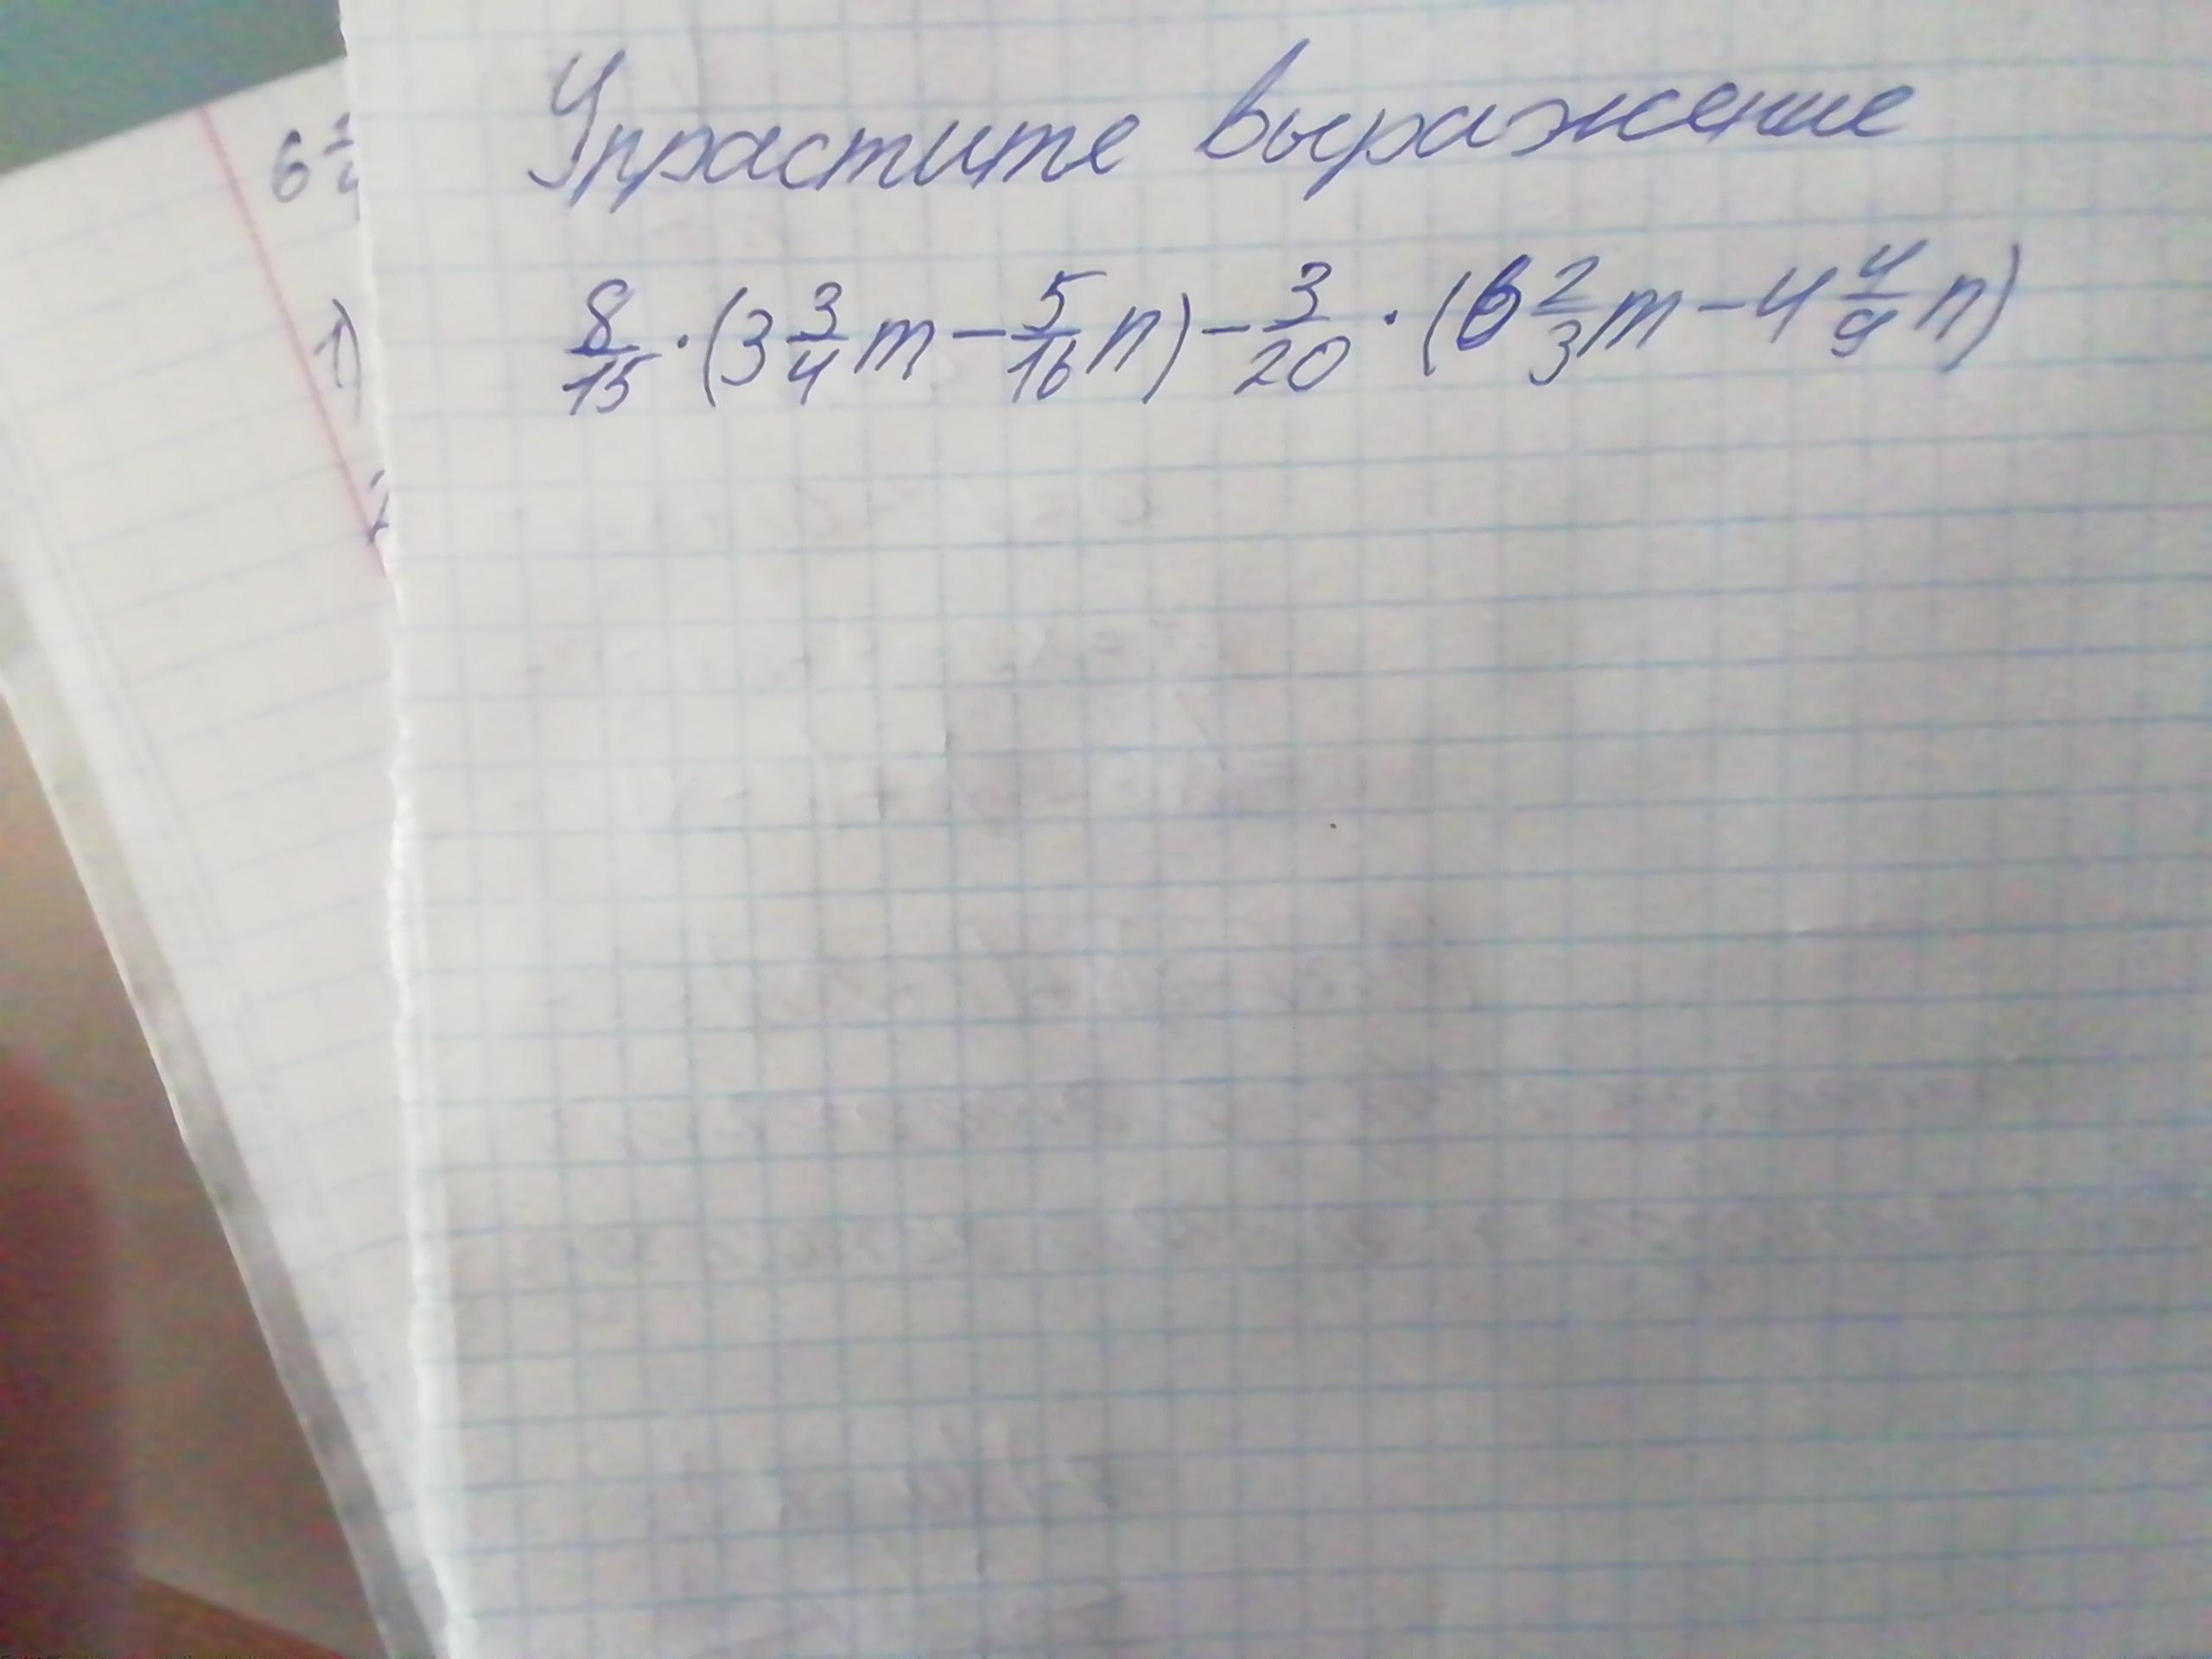 Упрастите выражение
8/15 · (3 3/4 m - 5/16 n) - 3/20 · (6 2/3 m - 4 4/9 n)
6
1)
2